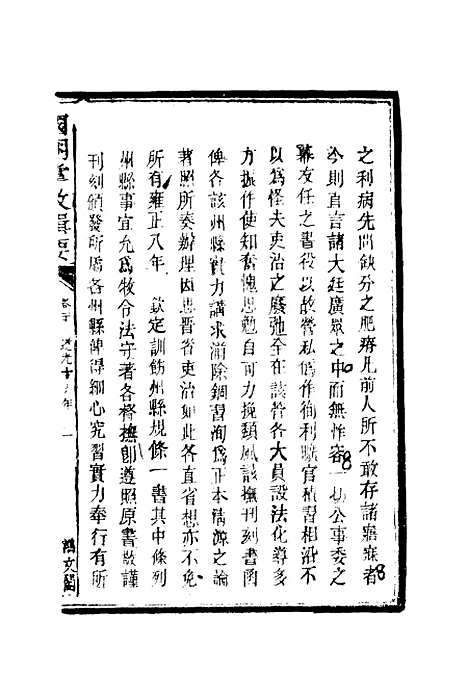 之利病先問缺分之肥瘠凡前人所不敢存諸寤寐者
今則直言諸大廷廣眾之中而無怍容一切公事委之
幕友任之書役以故營私僞作徇利曠官積習相沿不
以爲怪夫吏治之廢弛全在該管各大員設法化導多
方振作使知奮愧思勉自可力挽頽風該撫刊刻書函
俾各該州縣實力講求湔除錮習洵爲正本清源之論
著照所奏辦理因思晉省吏治如此各直省想亦不免
所有雍正八年 欽定訓飭州縣規條一書其中條列
州縣事宜允爲牧令法守著各督撫卽遵照原書敬謹
刊刻頒發所屬各州縣俾得細心究習實力奉行有所
國朝掌故輯要 卷 道光十 年 一